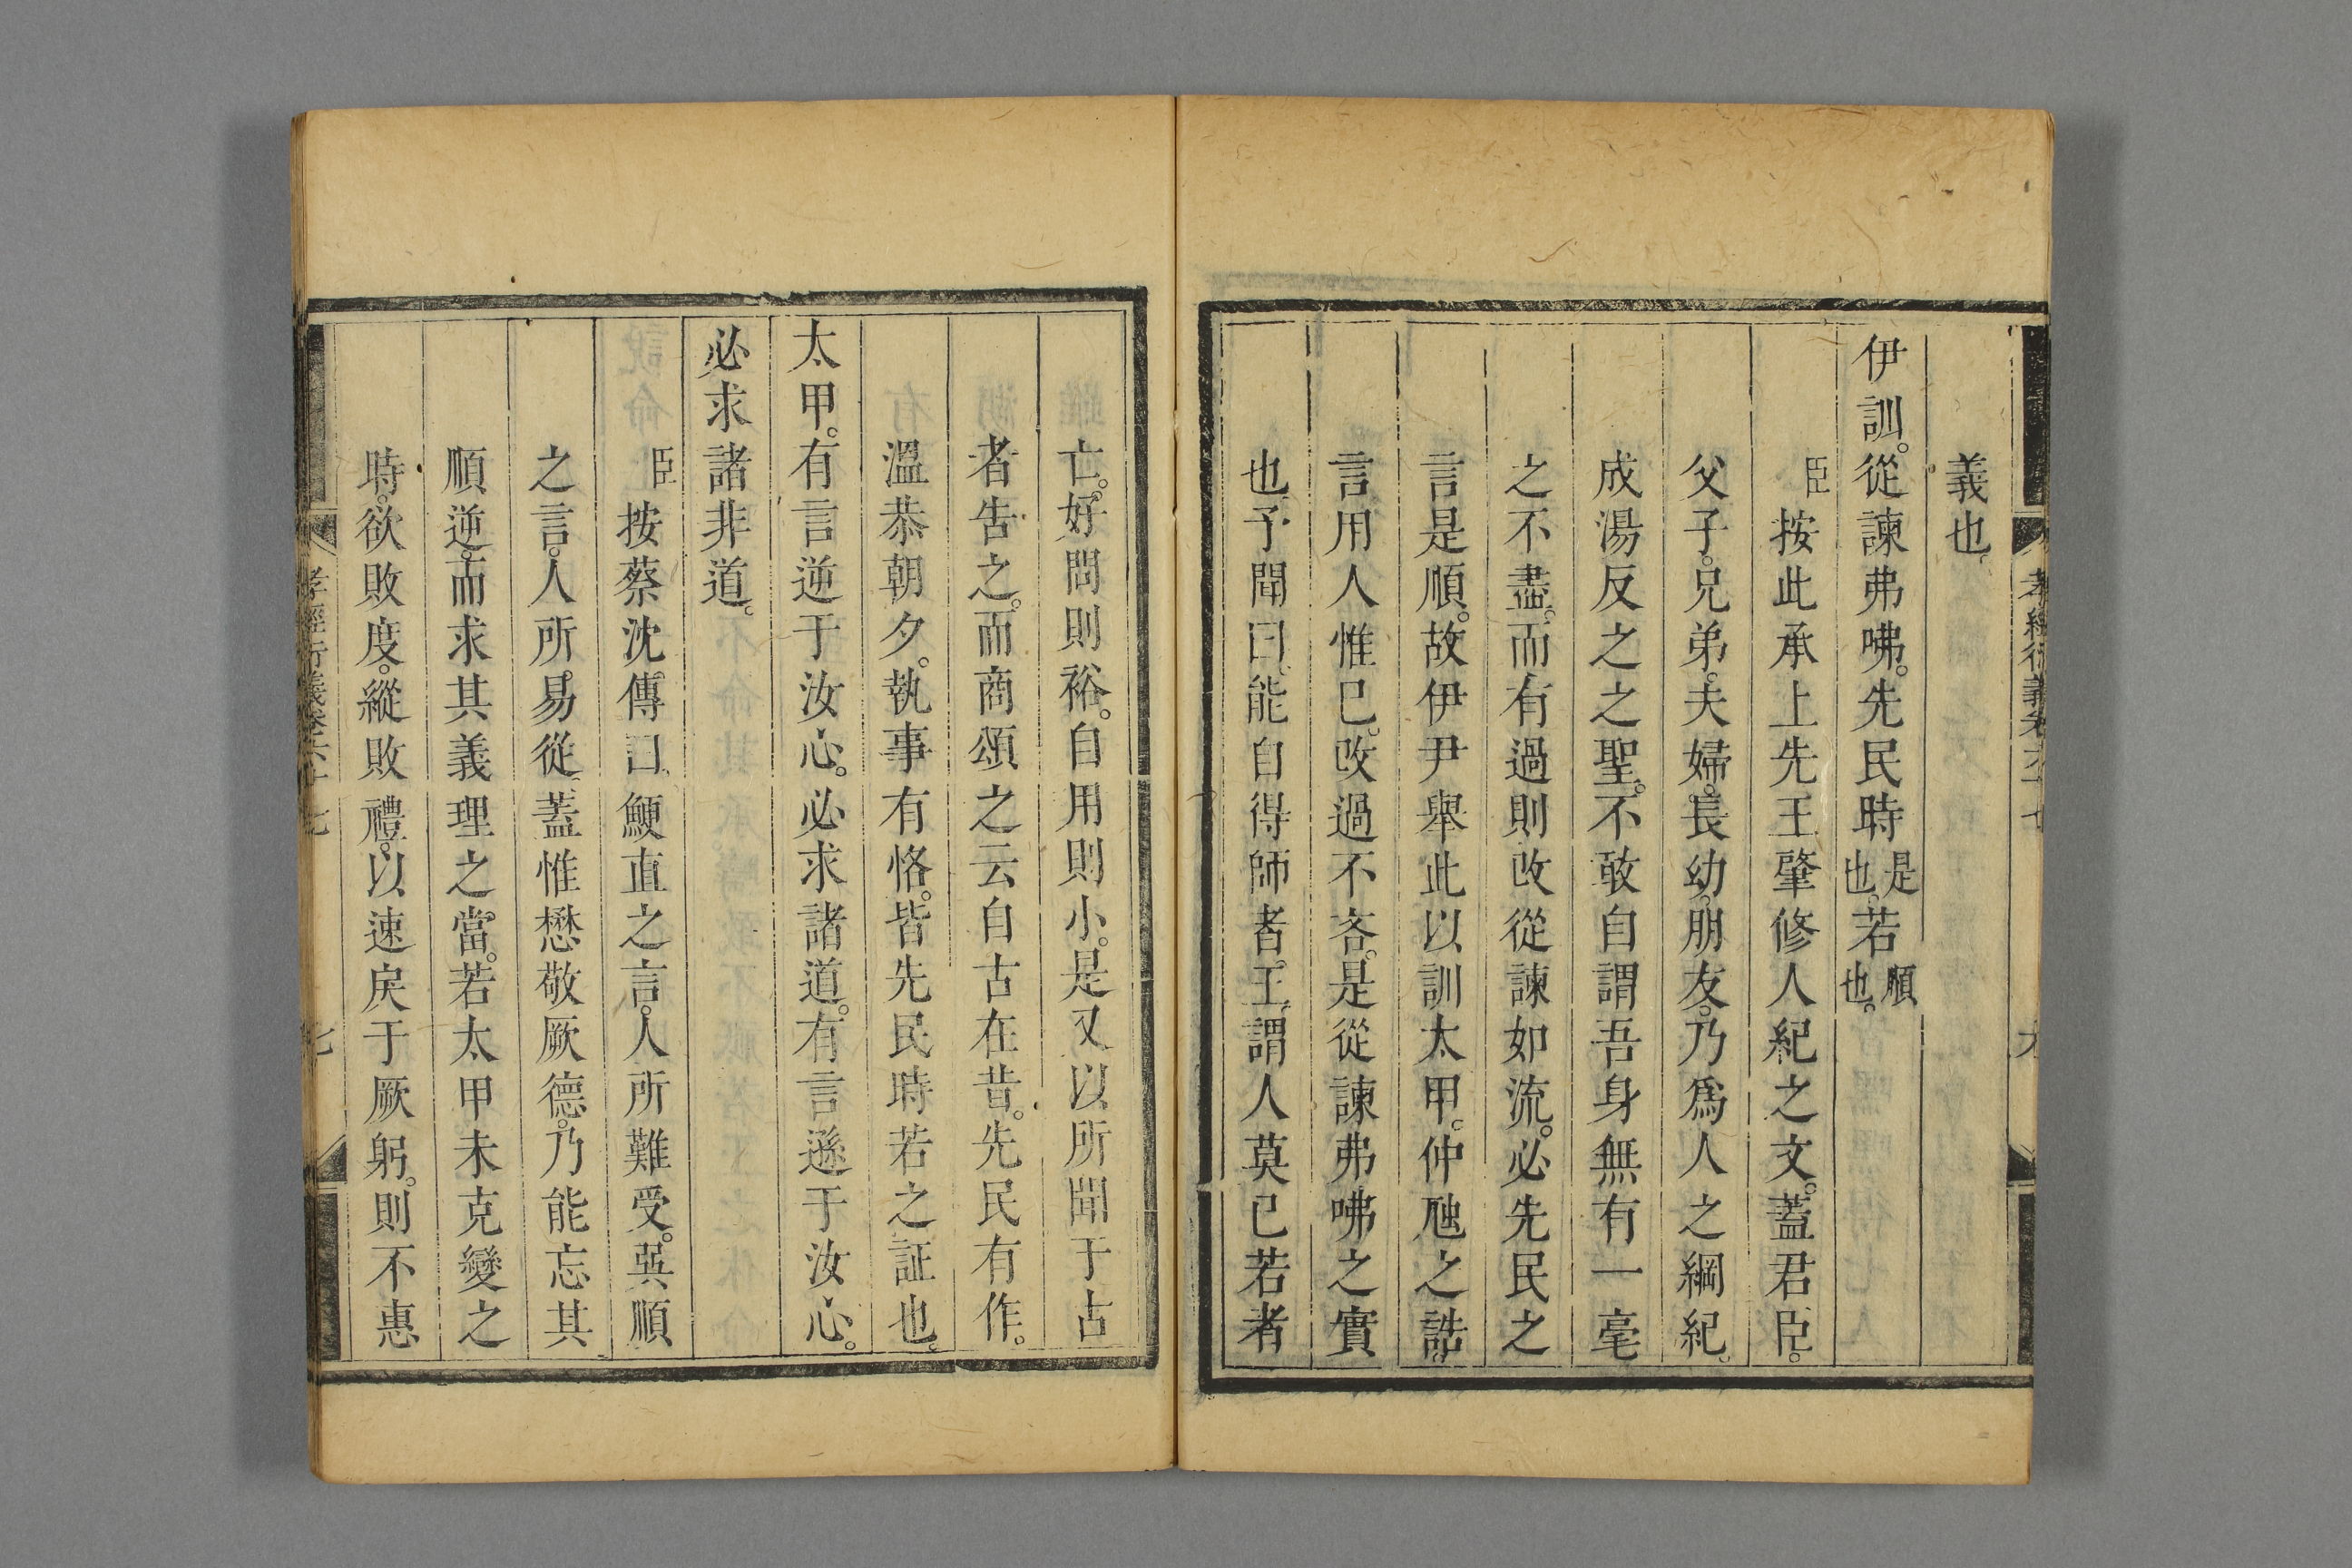 義也。
伊訓。從諫弗咈。先民時是也。若順也。
臣按此承上先王肇修人紀之文。蓋君臣。
父子。兄弟。夫婦。長幼。朋友。乃爲人之綱紀。
成湯反之之聖。不敢自謂吾身無有一毫
之不盡。而有過則改從諫如流。必先民之
言是順。故伊尹舉此以訓太甲。仲虺之誥。
言用人惟已。改過不吝。是從諫弗咈之實
也。予聞曰。能自得師者。王。謂人莫已若者
亡。好問則裕。自用則小。是又以所聞于古
者告之。而商頌之云自古在昔。先民有作。
溫恭朝夕。執事有恪。皆先民時若之証也。
太甲。有言逆于汝心。必求諸道。有言遜于汝心。
必求諸非道。
臣按蔡沈傳曰。鯁直之言。人所難受。巽順
之言。人所易從。蓋惟懋敬厥德。乃能忘其
順逆。而求其義理之當。若太甲未克變之
時。欲敗度。縱敗禮。以速戾于厥躬。則不惠
孝經衍義卷六十七
七